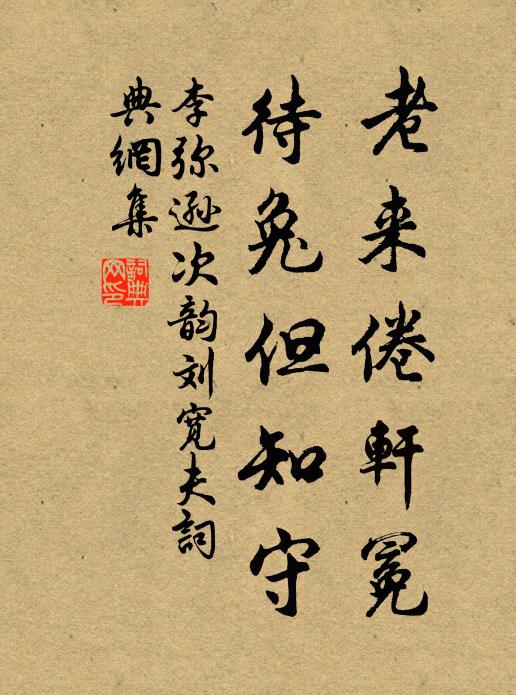 老来倦軒冕
待兔但知守
李弥逊次韵刘宽夫詞
典網集
詞典
网印